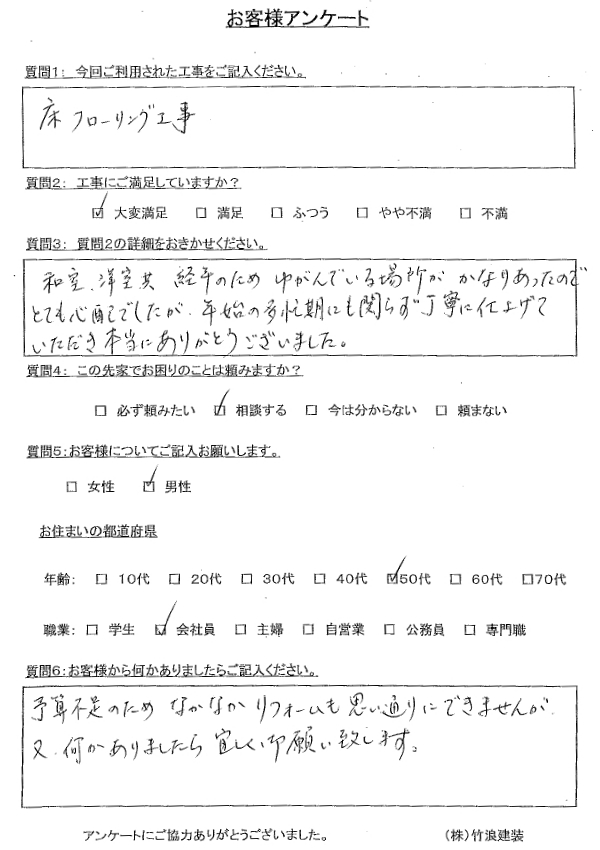 お客様アンケート
質問1： 今回ご利用された工事をご記入ください。
床 フローリング工事
質問2： 工事にご満足していますか？
☑ 大変満足 □ 満足 □ ふつう □ やや不満 □ 不満
質問3： 質問2の詳細をおきかせください。
和室、洋室共 経年のため ゆがんでいる場所が かなりあったので
とても心配でしたが、年始の多忙期にも関らず丁寧に仕上げて
いただき本当にありがとうございました。
質問4： この先家でお困りのことは頼みますか？
□ 必ず頼みたい ☑ 相談する □ 今は分からない □ 頼まない
質問5：お客様についてご記入お願いします。
□ 女性 ☑ 男性
お住まいの都道府県
年齢： □ 10代 □ 20代 □ 30代 □ 40代 ☑50代 □ 60代 □70代
職業： □ 学生 ☑ 会社員 □ 主婦 □ 自営業 □ 公務員 □ 専門職
質問6：お客様から何かありましたらご記入ください。
予算不足のため なかなか リフォームも 思い通りにできませんが、
又、何かありましたら 宜しく御願い致します。
アンケートにご協力ありがとうございました。 （株）竹浪建装